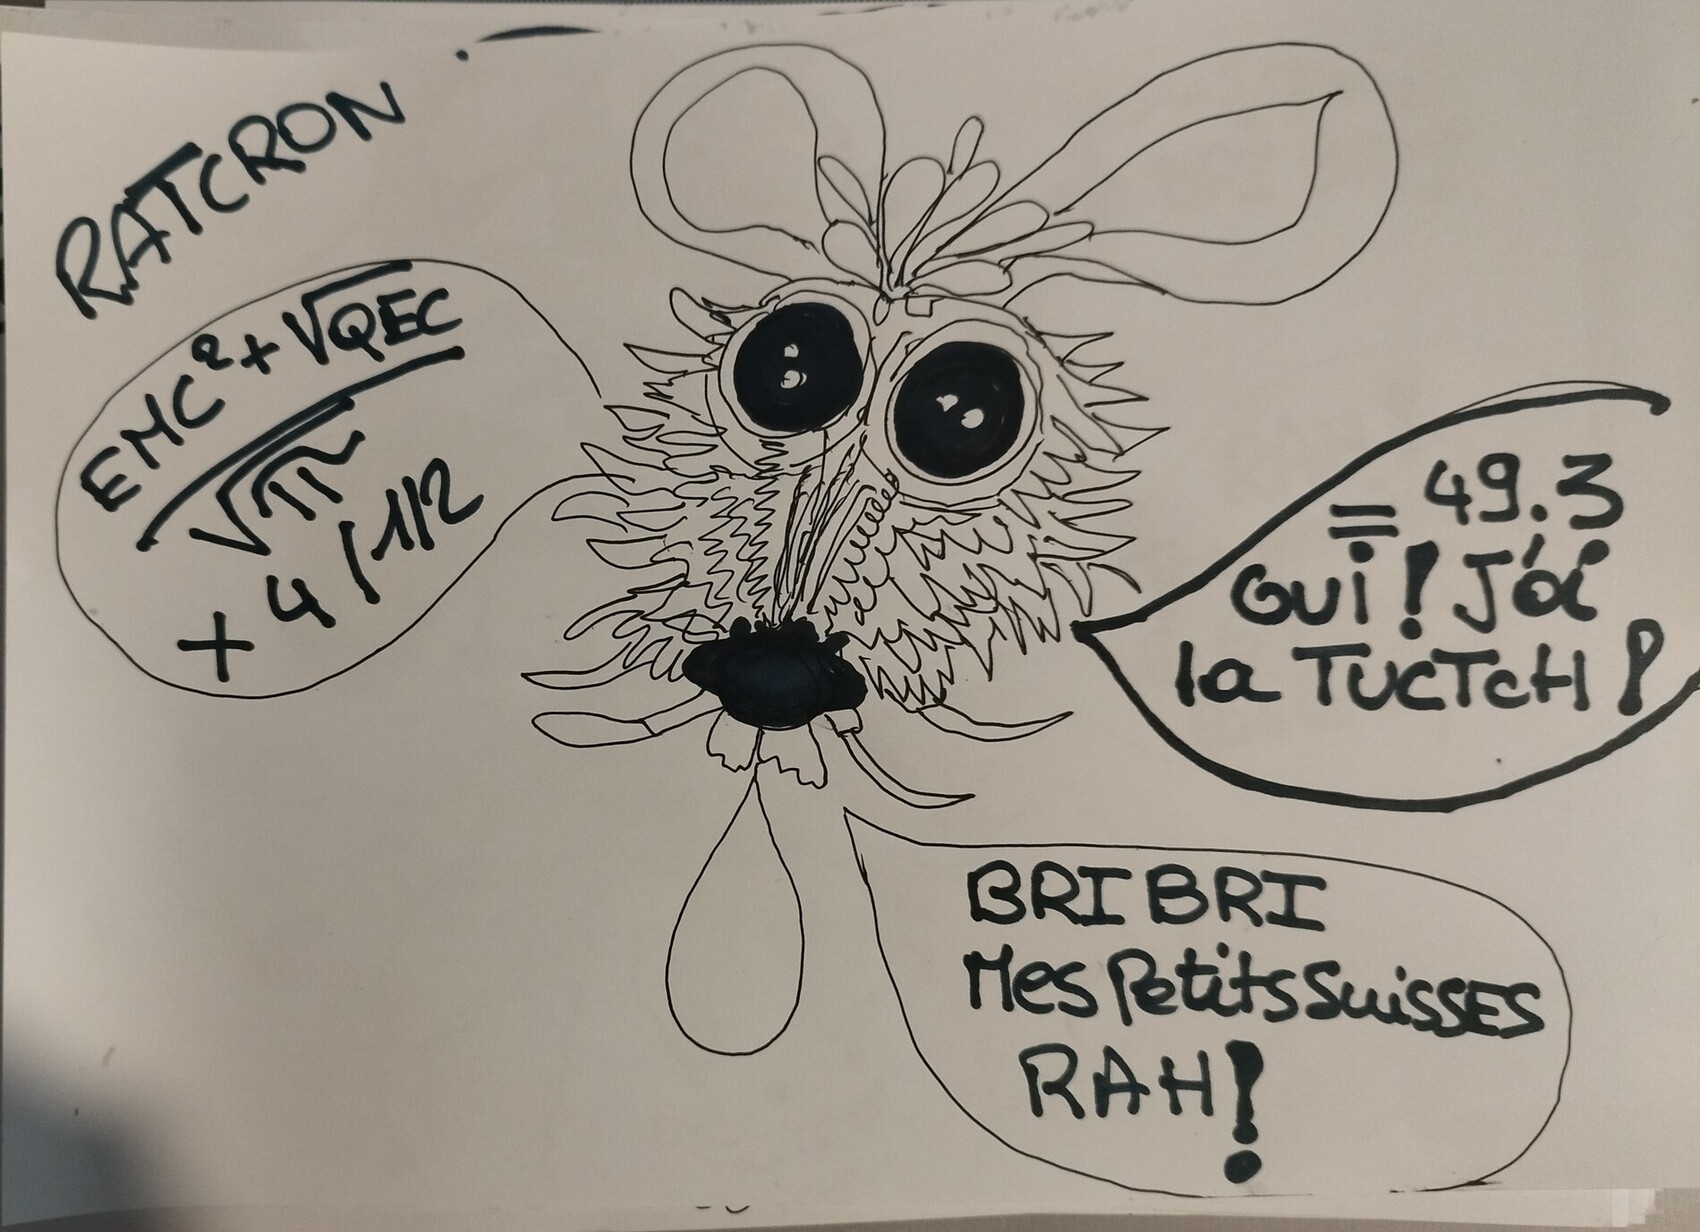 RATCRON
EMC²+√QEC
√π
+ 4/1/2
= 49.3
OUI! J'ai
la TUCTCH!
BRI BRI
Mes Petits SuisSES
RAH!